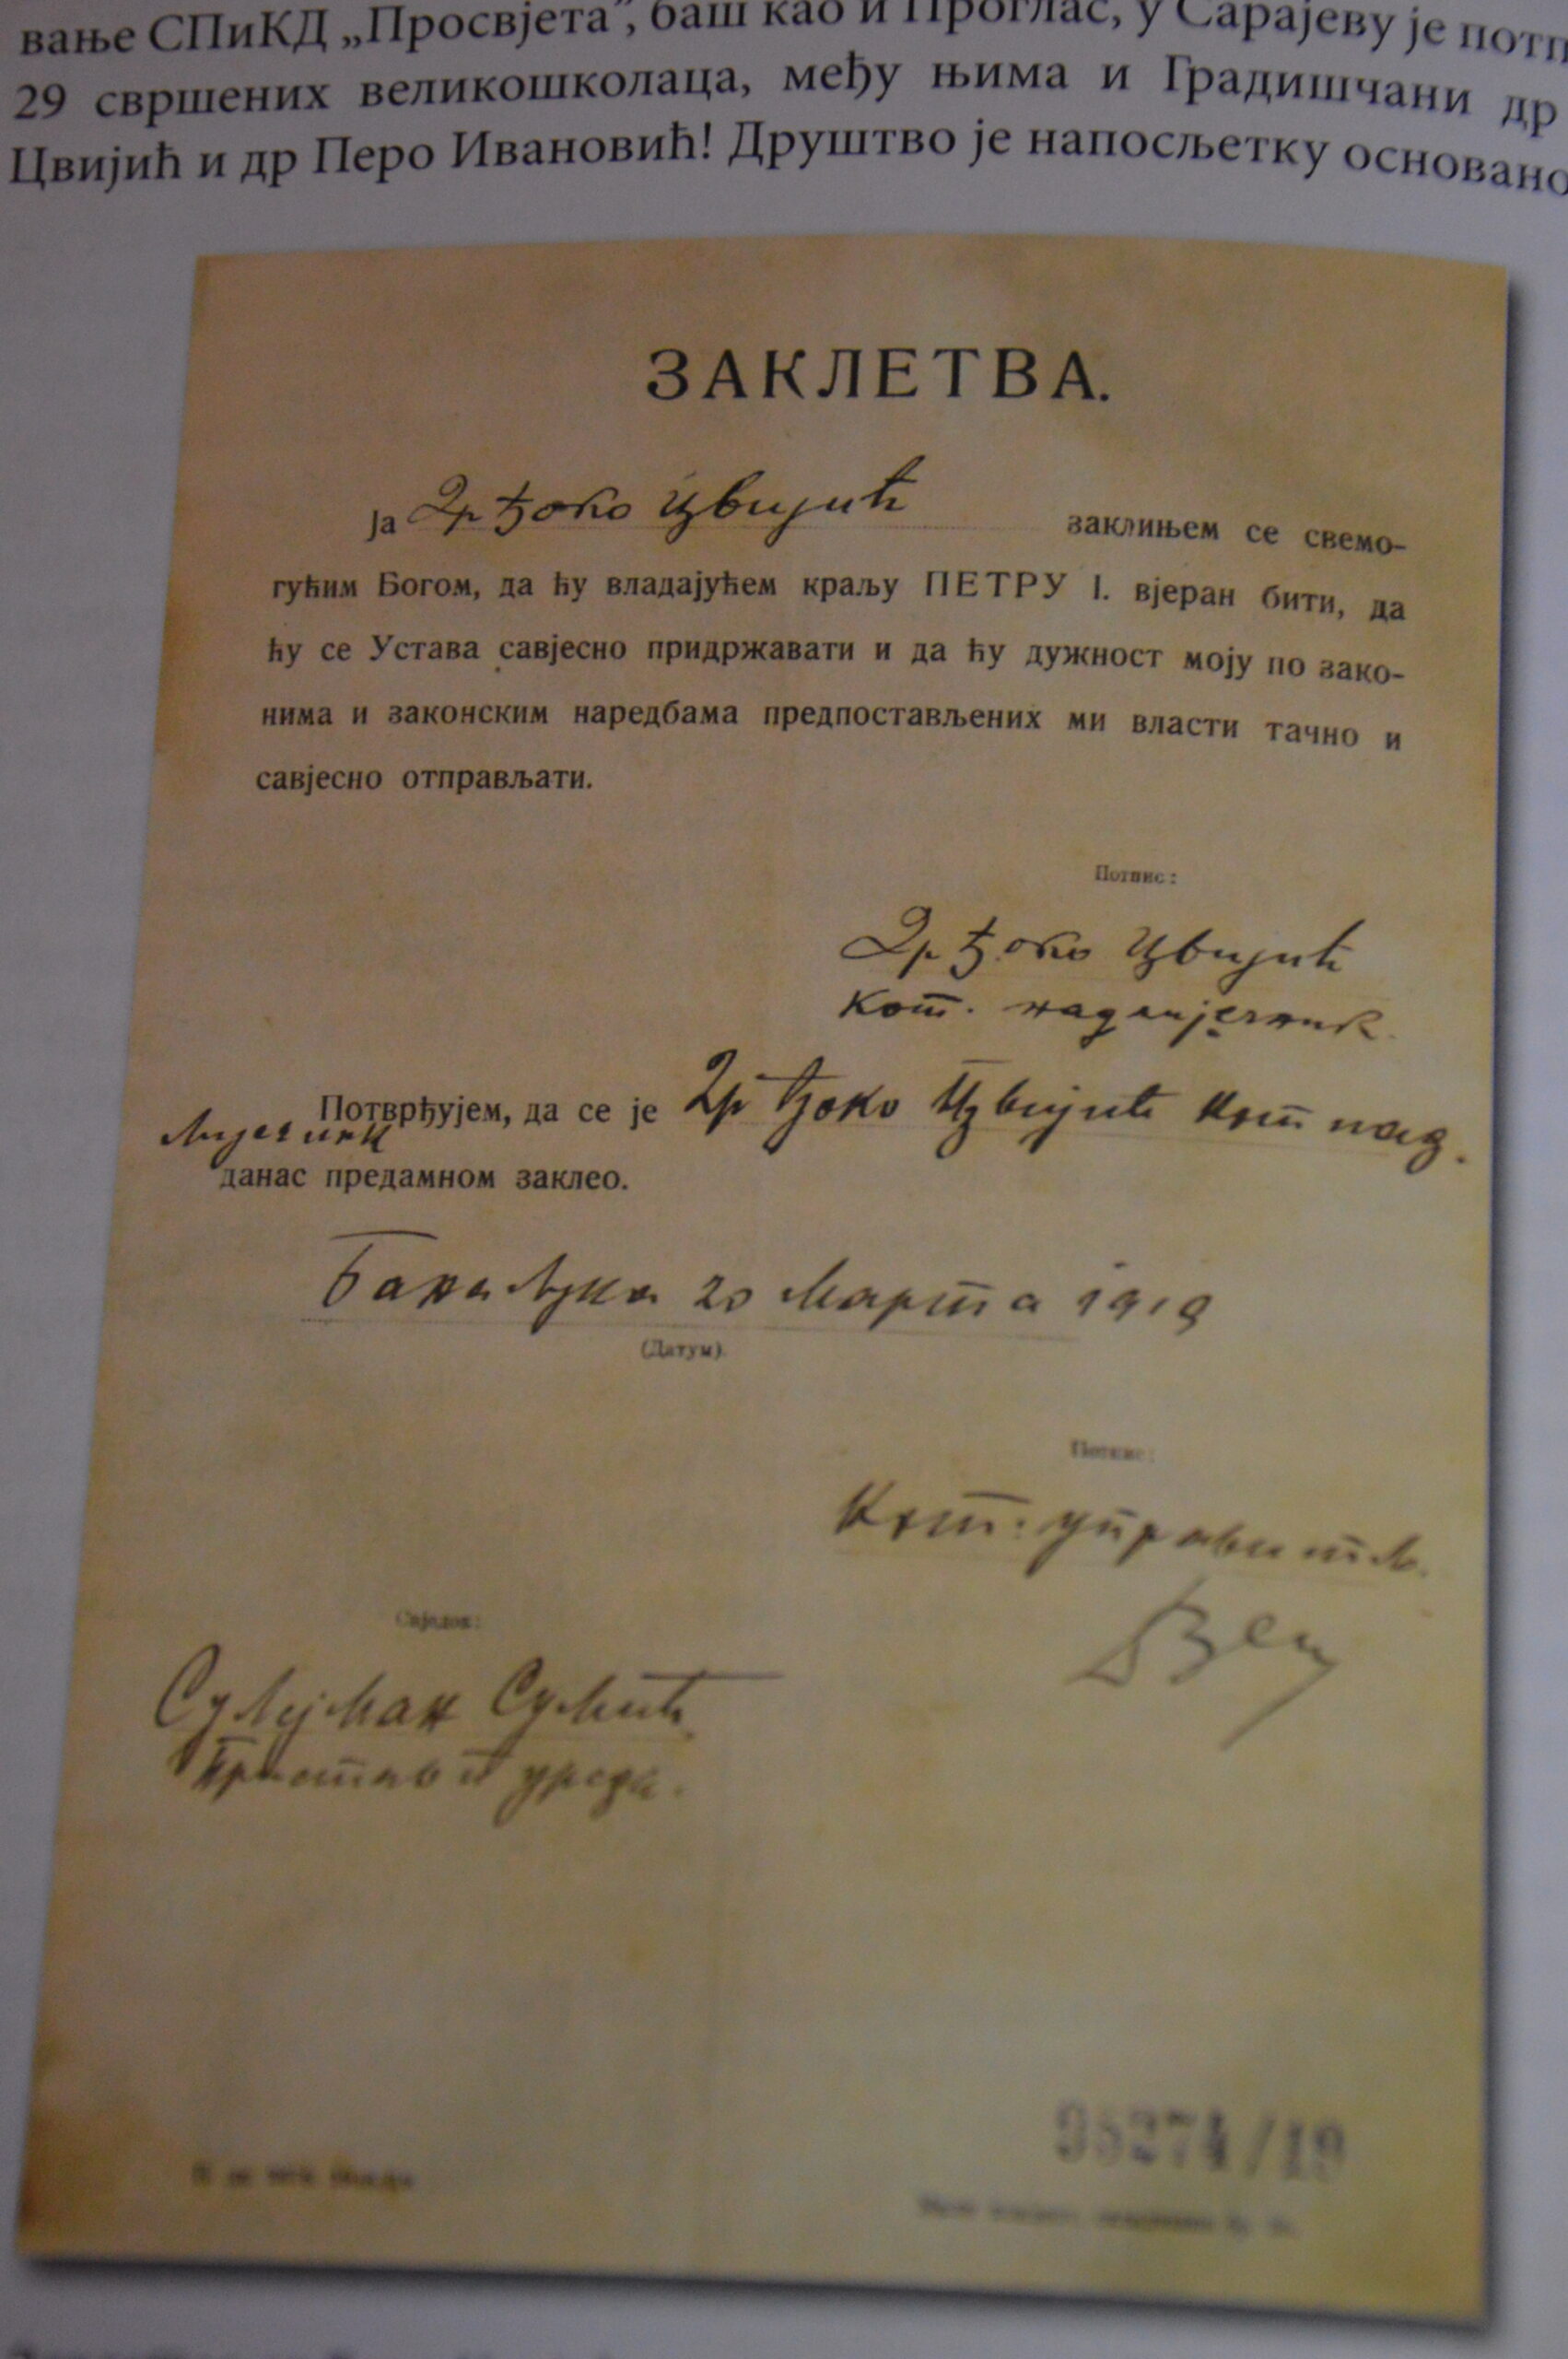 вање СПиКД „Просвјета”, баш као и Проглас, у Сарајеву је потп
29 свршених великошколаца, међу њима и Градишчани др
Цвијић и др Перо Ивановић! Друштво је напосљетку основано
ЗАКЛЕТВА.
Ја Др Ђоко Цвијић заклињем се свемо-
гућим Богом, да ћу владајућем краљу ПЕТРУ I. вјеран бити, да
ћу се Устава савјесно придржавати и да ћу дужност моју по зако-
нима и законским наредбама предпостављених ми власти тачно и
савјесно отправљати.
Потпис:
Др Ђоко Цвијић
Кот. надлијечник
Потврђујем, да се је Др Ђоко Цвијић кот над.
лијечник
данас предамном заклео.
Бања Лука 20 Марта 1919
(Датум).
Потпис:
Кот. управитељ.
Свједок:
Сулејман Сулић
уреда.
95274/19